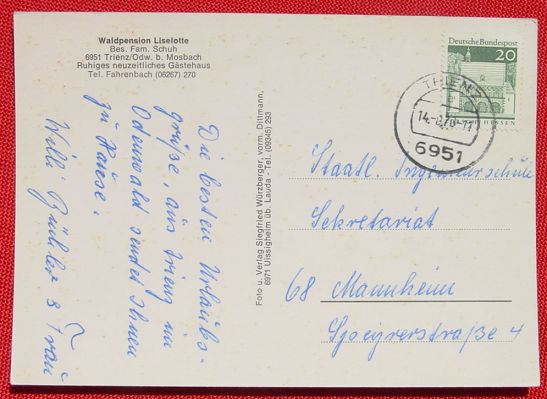 Waldpension Liselotte
Bes. Fam. Schuh
6951 Trienz/Odw. b. Mosbach
Ruhiges neuzeitliches Gästehaus
Tel. Fahrenbach (06267) 270
Die besten Urlaubs-
grüße, aus Trienz im
Odenwald sendet Ihnen
zu Hause.
Willi & Frau
Foto u. Verlag Siegfried Würzberger, vorm. Dittmann,
6971 Uissigheim üb. Lauda - Tel. (09345) 293
Deutsche Bundespost
20
HESSEN
TRIENZ
6951
Staatl. Ingenieurschule
Sekretariat
68 Mannheim
Speyrerstraße 4